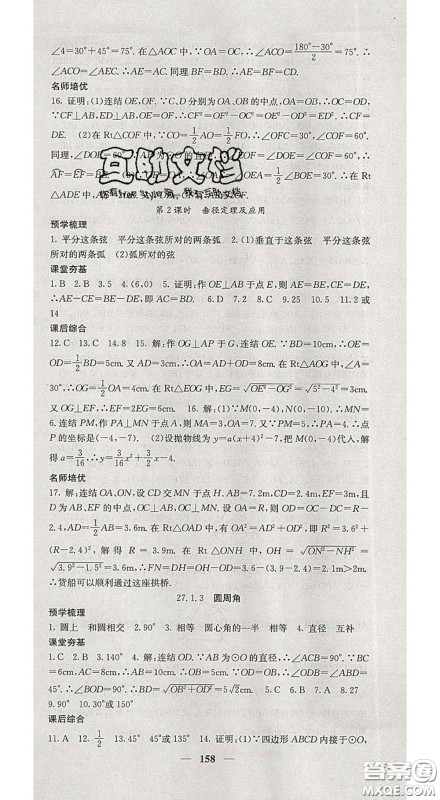 ∠4=30°+45°=75°. 在△AOC中,∵OA=OC,∴∠ACO=(180°-30°)/2=75°. ∴
∠ACO=∠AEC. ∴AE=AC. 同理BF=BD. ∴AE=BF=CD.
名师培优
16. 证明:(1)连结OE,OF. ∵C、D分别为OA、OB的中点,∴OC=OD,
∵CF⊥AB,ED⊥AB,∴CF²=OF²-OC²=OE²-OD²=ED²,∴CF=
DE. (2)在Rt△OFC中,∵CO=1/2 AO=1/2 FO,∴∠OFC=30°,∠COF=60°.
同理,∠DOE=60°
第2课时 垂径定理及应用
预学梳理
1. 平分这条弦 平分这条弦所对的两条弧 2. (1)垂直于这条弦 这条弦
所对的两条弧 (2)弧所对的弦
课堂夯基
1. B 2. B 3. 5 4. (6,0) 5. 证明:作OE⊥AB于点E,则AE=BE,CE=DE,
∴AE-CE=BE-DE,即AC=BD. 6. C 7. D 8. C 9. 25 10. 5 11. 2或
14
课后综合
12. C 13. C 14. 8 15. 解:作OG⊥AP于G,连结OE. ∵BD=10cm,∴
OD=1/2 BD=5cm. 又AD=3cm,∴OA=AD+OD=8cm. 在Rt△AOG中,∠A=
30°,∴OG=1/2 OA=4cm. 在Rt△EOG中,EG=√(OE²-OG²)=√(5²-4²)=3cm.
又OG⊥EF,∴EF=2EG=6cm. 16. 解:(1)∵M(0,-4),N(0,-10),∴MN=
6. 连结PM,作PA⊥MN于点A,则AM=3. 又∵PM=5,∴PA=4. ∴点
P的坐标是(-4,-7). (2)设抛物线为y=a(x+4)²-7,把M(0,-4)代入,解
得a=3/16,∴y=3/16 x²+3/2 x-4.
名师培优
17. 解:连结OA、ON,设CD交MN于点H. AB=7.2m,CD=2.4m,EF=3m,且
D为AB、EF的中点,OC⊥AB,OC⊥MN. 设OA=R,则OD=OC-DC=R-
2.4,AD=1/2 AB=3.6m. 在Rt△OAD中,有OA²=AD²+OD²,即R²=3.6²+
(R-2.4)²,解得R=3.9m. 在Rt△ONH中,OH=√(ON²-NH²)=
√(3.9²-1.5²)=3.6m. ∴FN=DH=OH-OD=3.6-(3.9-2.4)=2.1m>2m.
∴货船可以顺利通过这座拱桥.
27.1.3 圆周角
预学梳理
1. 圆上 和圆相交 2. 90° 3. 相等 圆心角的一半 相等 4. 直径 互补
课堂夯基
1. C 2. B 3. 140° 4. 16° 5. 解:连结OD. ∵AB为⊙O的直径,∴∠ACB=90°. ∵BC=
6cm,AC=8cm,∴AB=10cm. ∴OB=5cm. ∵OD=OB,∴∠ODB=∠ABD=
45°. ∴∠BOD=90°. ∴BD=√(OB²+OD²)=5√2cm. 6. B 7. A 8. 27
9. 90° 10. 30°或150°
课后综合
11. A 12. 1/2 13. 45°或135° 14. 证明:(1)∵四边形ABCD内接于⊙O,∴
158
互助文档
答案圈
MXQE.COM